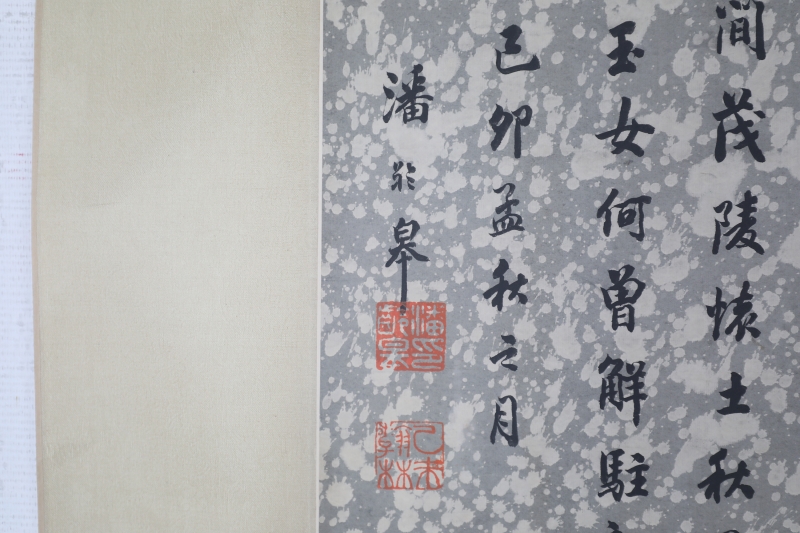 茂陵懷土秋
玉女何曾解駐
己卯孟秋之月
潘齡皋
潘印齡皋
乙未翰林